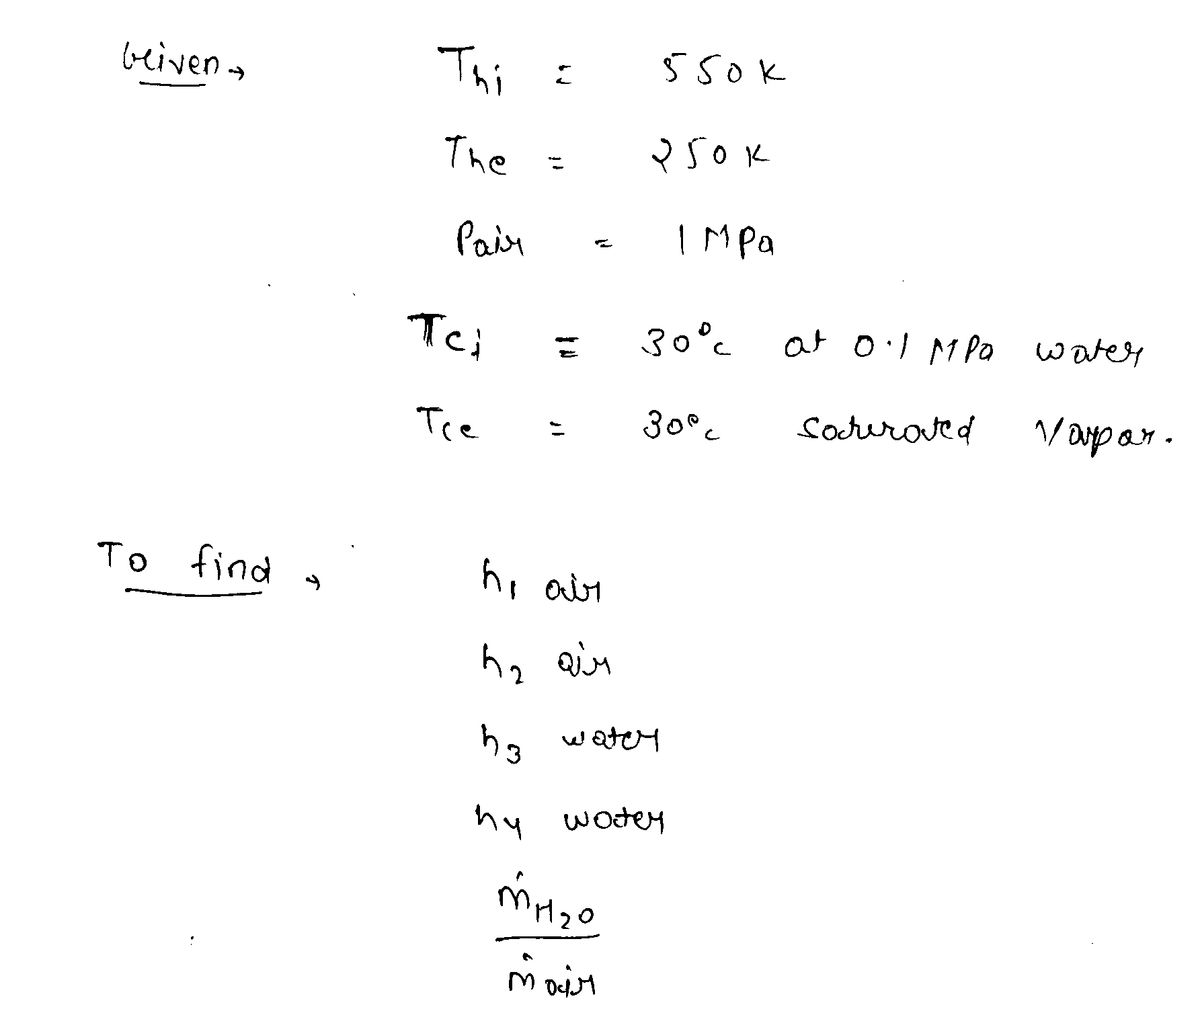 Given →
Thi = 550 K
The = 250 K
Pair = 1 MPa
Tci = 30°c at 0.1 MPa water
Tce = 30°c saturated Vapor.
To find →
h1 air
h2 air
h3 water
h4 water
ṁH2O
ṁ air